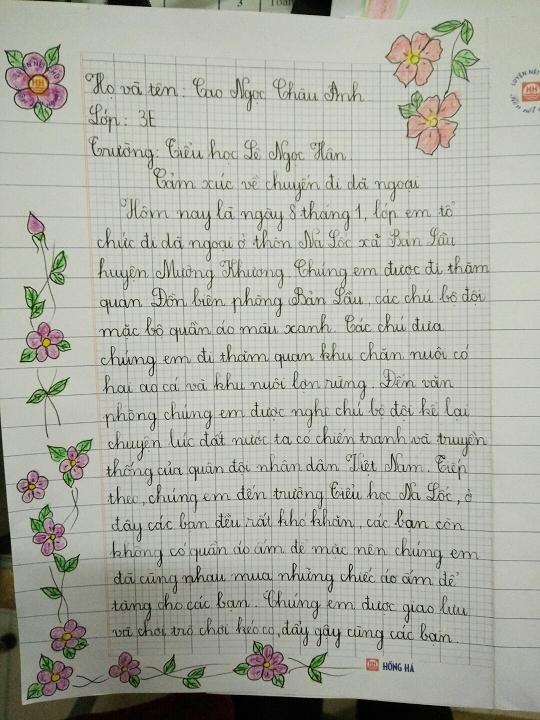 Họ và tên: Cao Ngọc Châu Anh
Lớp: 3E
Trường: Tiểu học Lê Ngọc Hân.
Cảm xúc về chuyến đi dã ngoại
Hôm nay là ngày 8 tháng 1, lớp em tổ
chức đi dã ngoại ở thôn Na Lốc xã Bản Lầu
huyện Mường Khương. Chúng em được đi thăm
quan Đồn biên phòng Bản Lầu, các chú bộ đội
mặc bộ quần áo màu xanh. Các chú đưa
chúng em đi thăm quan khu chăn nuôi có
hai ao cá và khu nuôi lợn rừng. Đến văn
phòng chúng em được nghe chú bộ đội kể lại
chuyện lúc đất nước ta có chiến tranh và truyền
thống của quân đội nhân dân Việt Nam. Tiếp
theo, chúng em đến trường Tiểu học Na Lốc, ở
đây các bạn đều rất khó khăn, các bạn còn
không có quần áo ấm để mặc nên chúng em
đã cùng nhau mua những chiếc áo ấm để
tặng cho các bạn. Chúng em được giao lưu
và chơi trò chơi kéo co, đẩy gậy cùng các bạn.
HH HỒNG HÀ